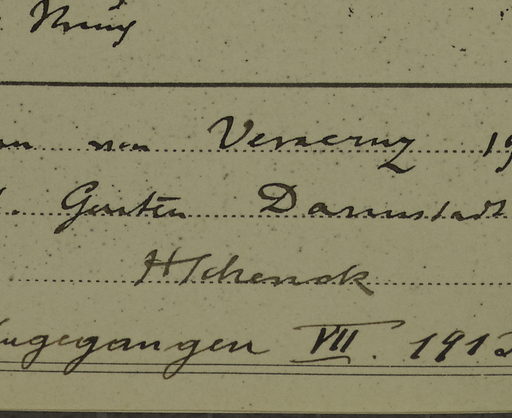 von Veracruz 19
. Garten Darmstadt
HSchenck
zugegangen VII. 1912